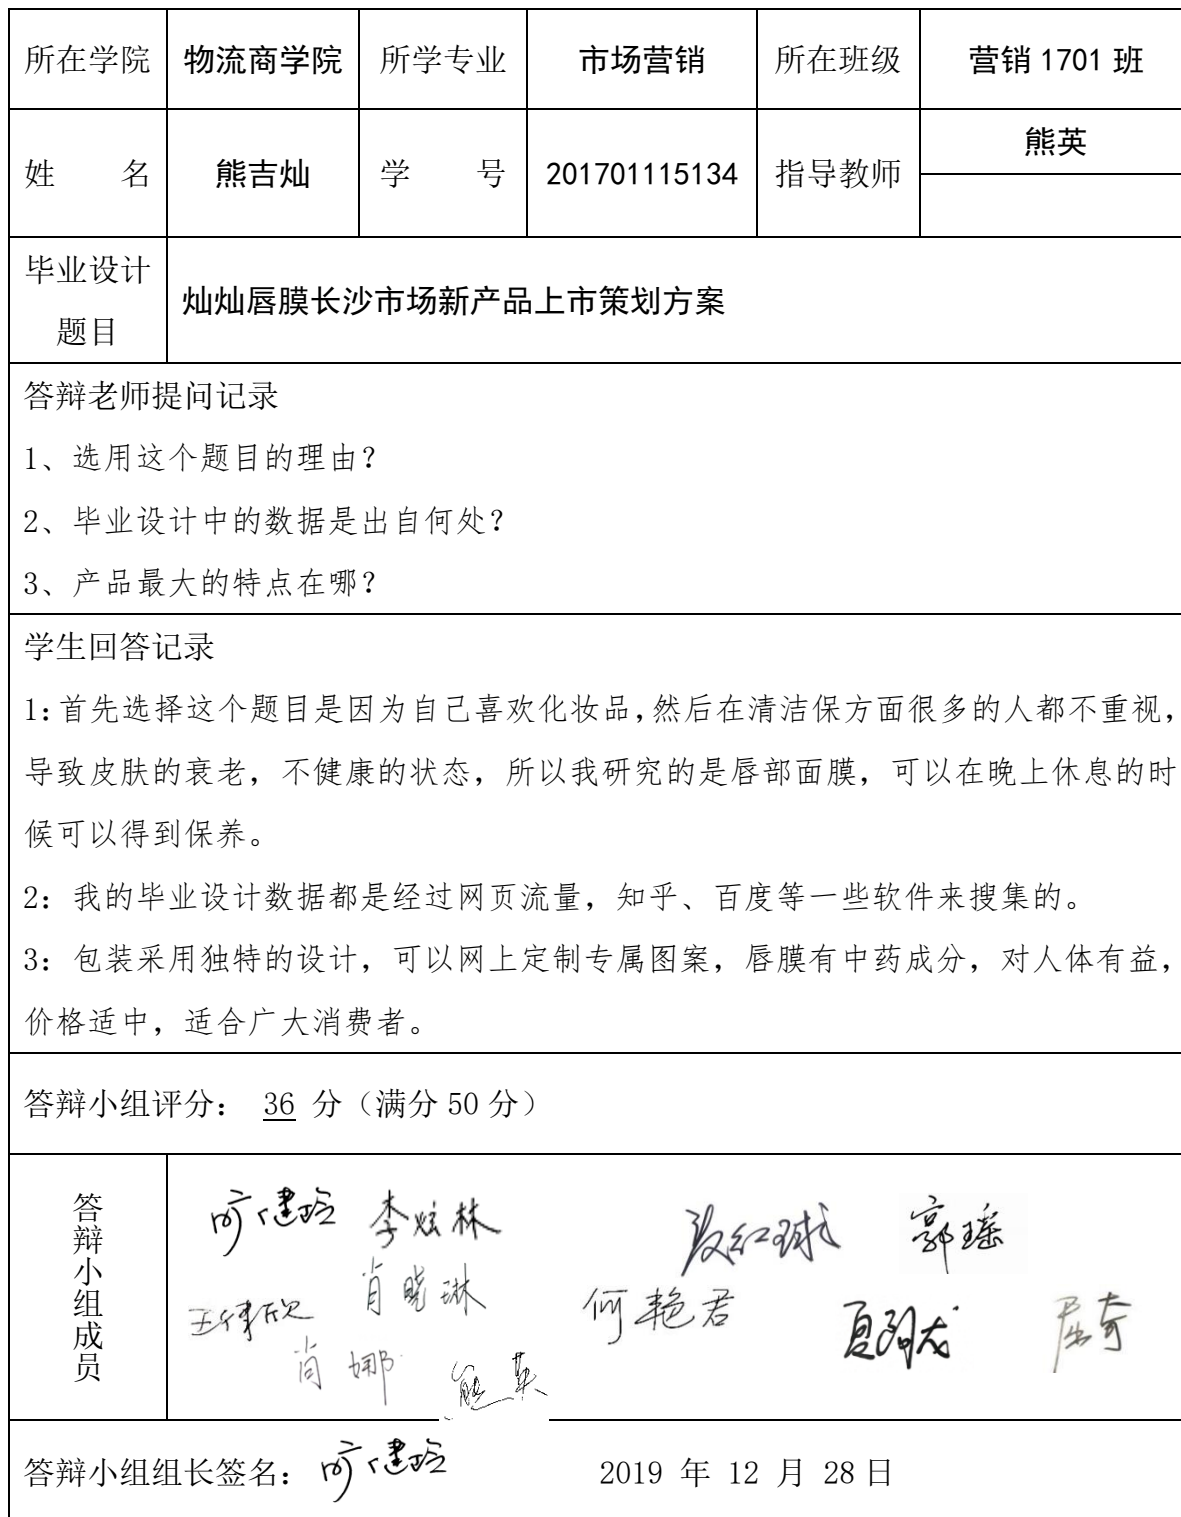 所在学院 物流商学院 所学专业 市场营销 所在班级 营销1701班
姓 名 熊吉灿 学 号 201701115134 指导教师 熊英
毕业设计
题目
灿灿唇膜长沙市场新产品上市策划方案
答辩老师提问记录
1、选用这个题目的理由？
2、毕业设计中的数据是出自何处？
3、产品最大的特点在哪？
学生回答记录
1:首先选择这个题目是因为自己喜欢化妆品,然后在清洁保方面很多的人都不重视,
导致皮肤的衰老，不健康的状态，所以我研究的是唇部面膜，可以在晚上休息的时
候可以得到保养。
2：我的毕业设计数据都是经过网页流量，知乎、百度等一些软件来搜集的。
3：包装采用独特的设计，可以网上定制专属图案，唇膜有中药成分，对人体有益，
价格适中，适合广大消费者。
答辩小组评分： 36 分（满分50分）
答辩小组成员
李炫林 郭瑶
肖晓琳 何艳君 屈奇
肖娜 熊英
答辩小组组长签名： 2019 年 12 月 28日